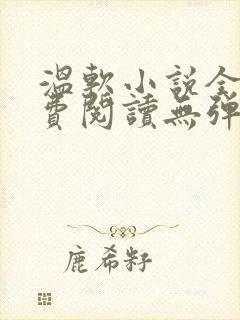 溫軟小說全
費閱讀無彈
鹿希籽